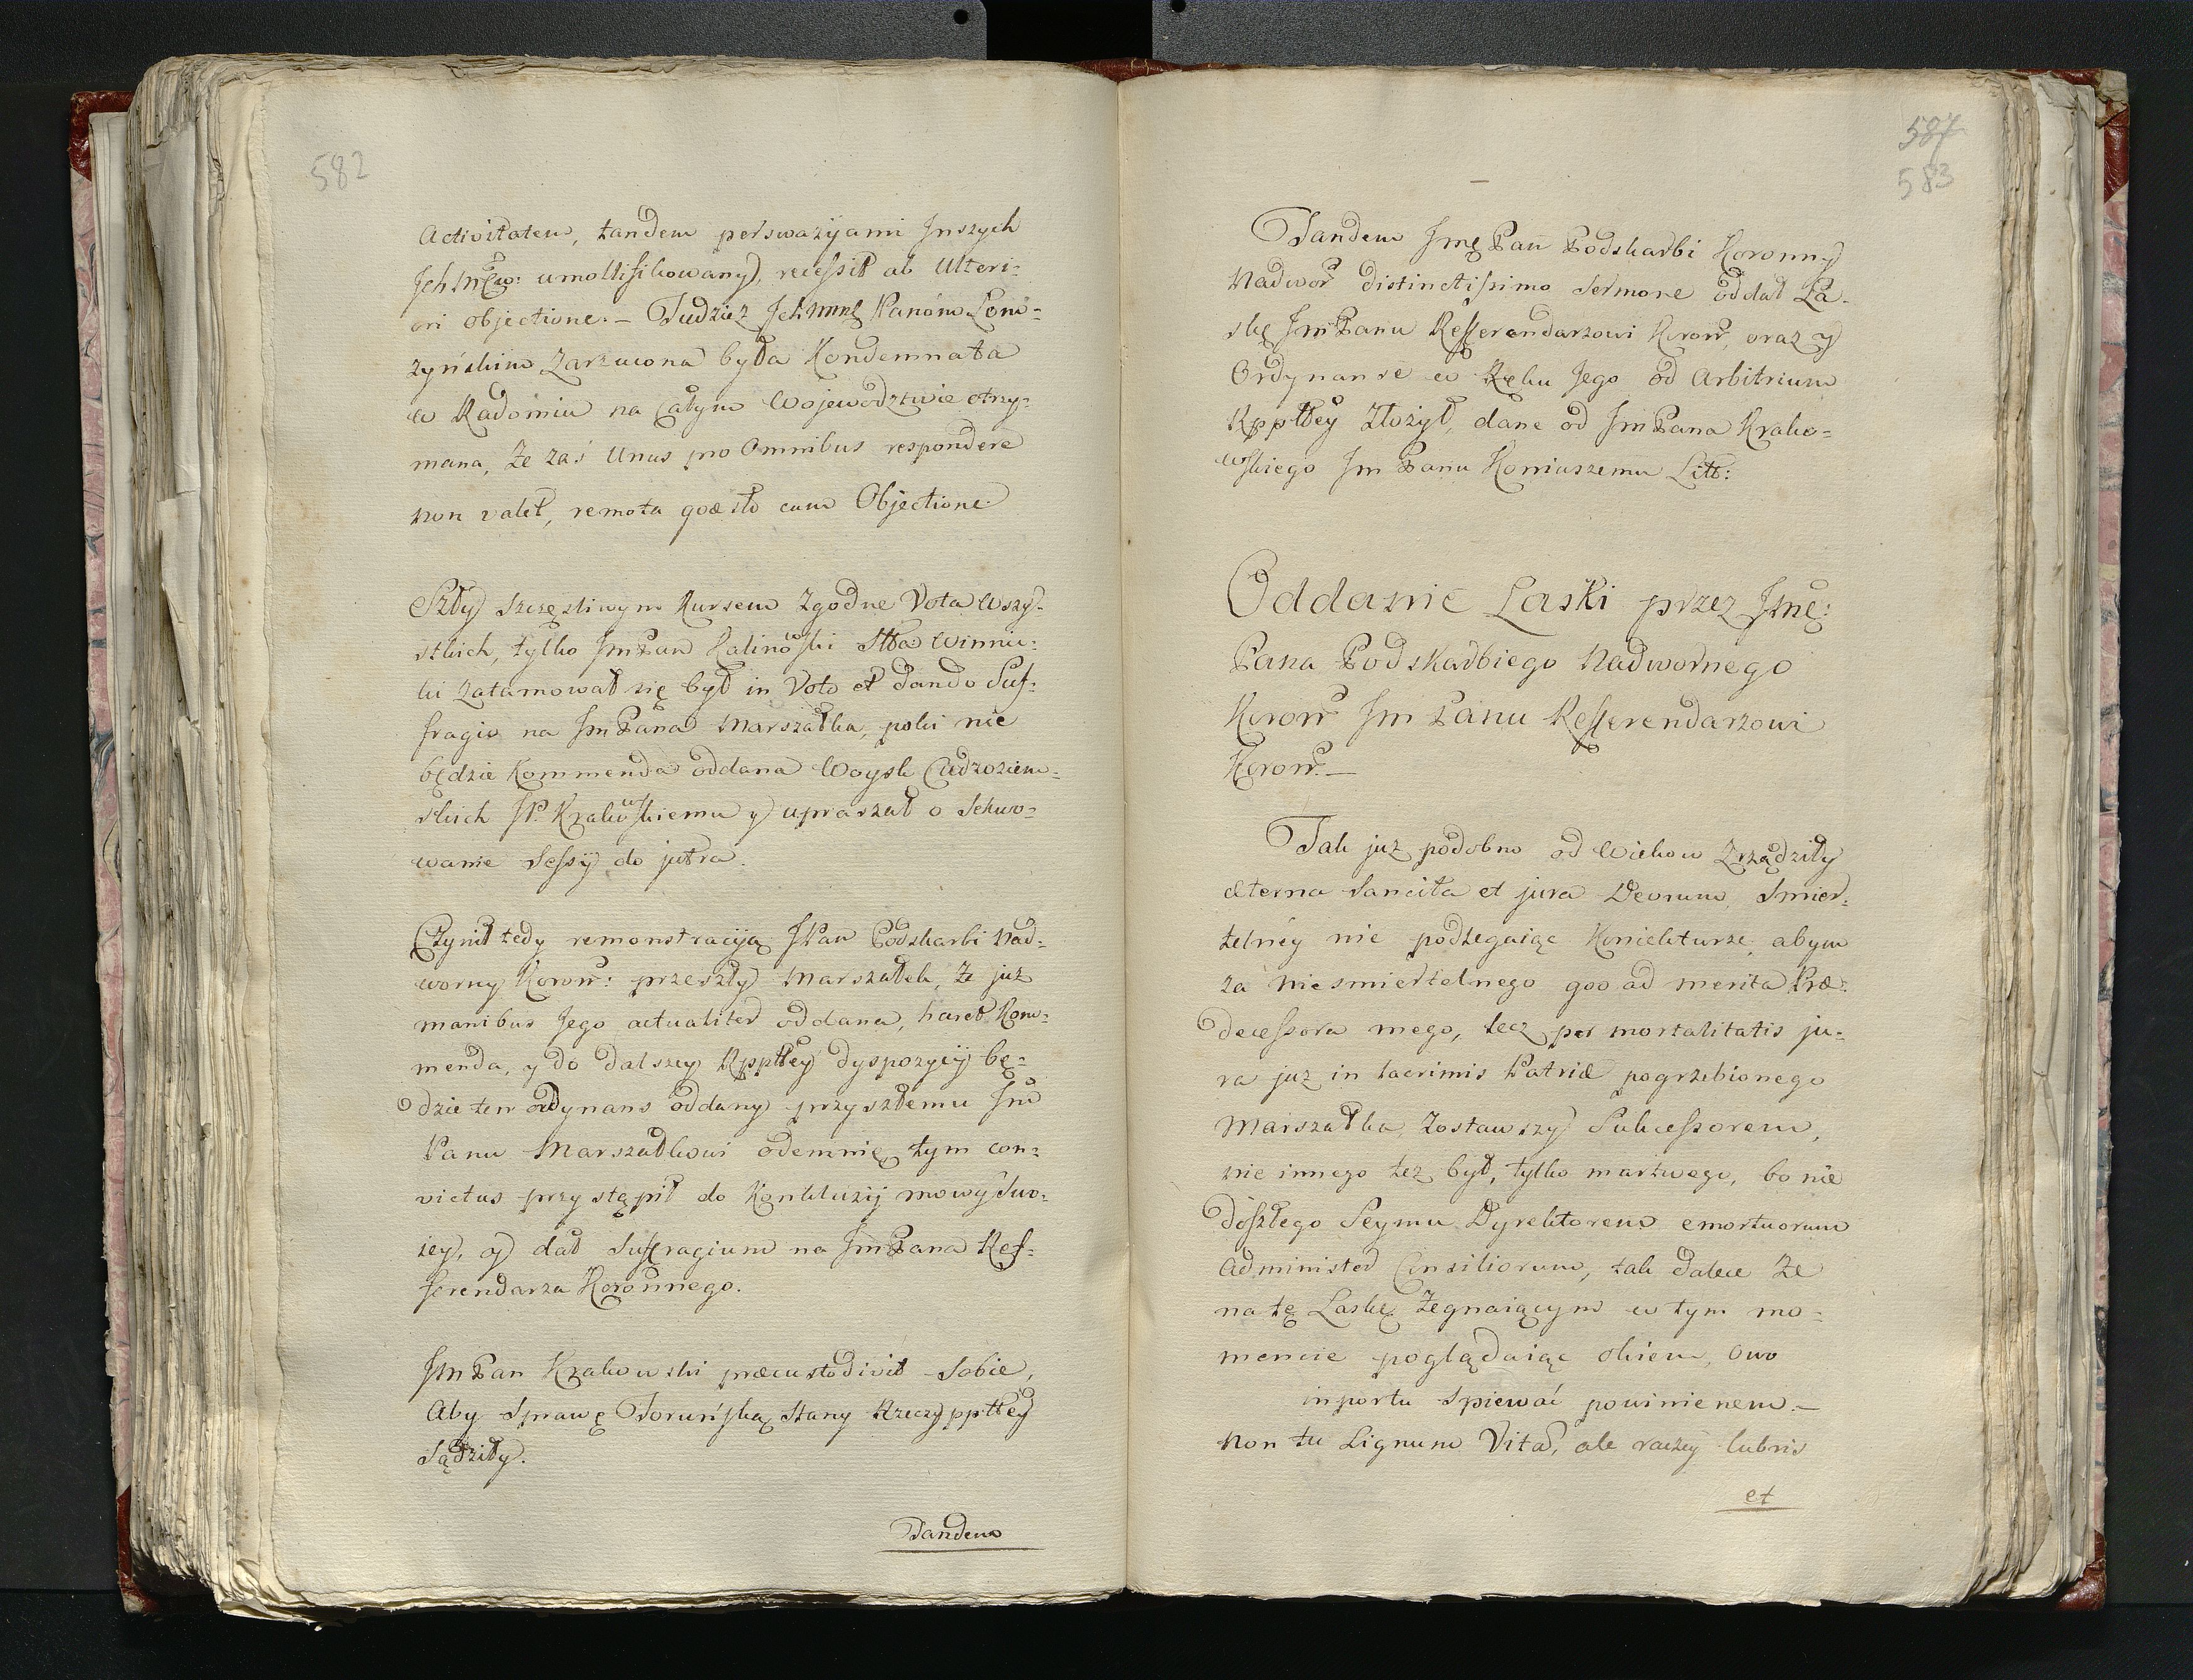 582
Activitatem, tandem perswazyiami Jnszych
umollifikowany, recessit ab Ulteri=
ori objectione. — Tudziez Jchmmę Panóm Łom=
zyńskim Zarzucona była Kondemnata
w Radomiu na całym Wojewodztwie otrzy=
mana, Ze zaś Unus pro Omnibus respondere
non valet, remota qvæsto cum Objectione.
Szły szczęsliwym Kursem Zgodne Vota Wszy=
stkich, tylko JmPan Kalinowski Stta Winnic=
ki zatamował się był in Voto et dando Suf=
fragio na JmPana Marszałka, poki nie
będzie Kommenda oddana Woysk Cudzoziem=
skich JP. Krakowskiemu y upraszał o Solwo=
wanie Sessÿ do jutra.
Czynił tedy remonstracyią JPan Podskarbi Nad=
worny Koron: przeszły Marszałek, Ze juz
manibus Jego actualiter oddana, hæret Kom=
menda, y do dalszey Rppltey dyspozycÿ bę=
dzie ten ordynans oddany przyszłemu Jm
Panu Marszałkowi odemnie, tym con=
victus przystąpił do Konkluzÿ mowy Swo=
iey, y dał Suffragium na JmPana Ref=
ferendarza Koronnego.
JmPan Krakowski præcustodivit Sobie,
Aby Sprawę Toruńską Stany Rzeczyppltey
Sądziły.
Tandem
587
583
Tandem Jmę Pan Podskarbi Koronny
Nadwor distinctissimo Sermone oddał La=
skę JmPanu Refferendarzowi Koron, oraz y
Ordynanse w Ręku Jego od Arbitrium
Rppltey Złozył, dane od JmPana Krako=
wskiego Jm Panu Koniuszemu Litt:
Oddanie Laski przez Jmę:
Pana Podskarbiego Nadwornego
Koron Jm Panu Refferendarzowi
Koron. —
Tak juz podobno od Wiekow Zrządziły
æterna Sancita et jura Deorum, Smier=
telney nie podlegaiąc Koniekturze, abym
za Niesmiertelnego qvo ad merita Præ=
decessora mego, lecz per mortalitatis ju=
ra juz in lacrimis Patriæ pogrzebionego
Marszałka, Zostawszy Sukcessorem,
nie innego tez był, tylko martwego, bo nie
doszłego Seymu Dyrektorem emortuorum
Administer Consiliorum, tak dalece Ze
na tę Laskę Zegnaiącym w tym mo=
mencie poglądaiąc okiem, Owo
in portu Spiewać powinienem. —
Non tu Lignum Vitæ, ale raczey lubris
et